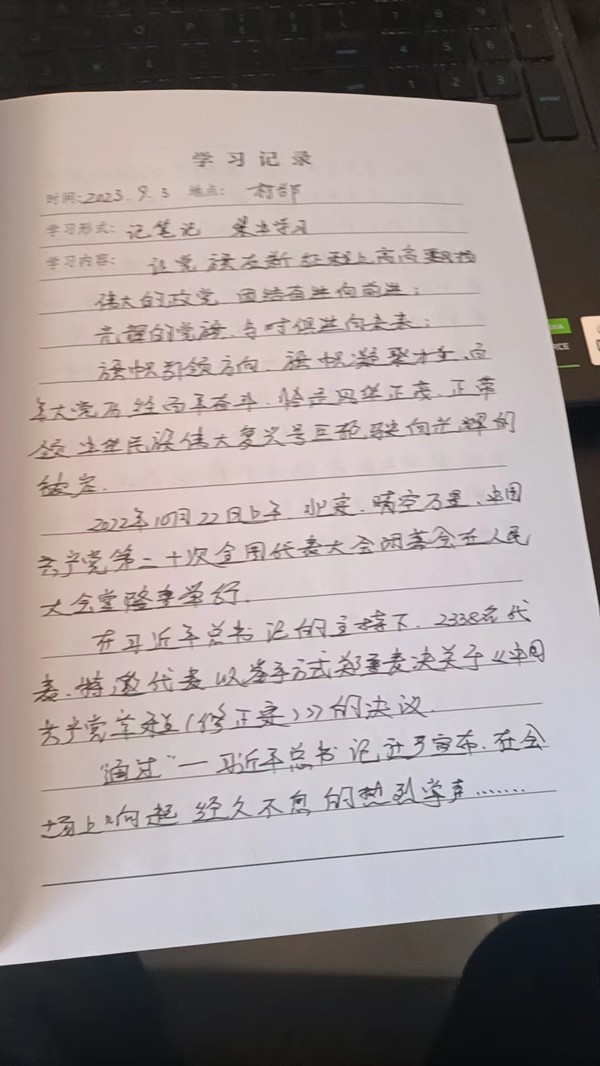 学习记录
时间: 2023.9.3 地点: 村部
学习形式: 记笔记 集中学习
学习内容: 让党旗在新征程上高高飘扬
伟大的政党,团结奋进向前进;
光辉的党旗,与时俱进向未来;
旗帜引领方向,旗帜凝聚力量,百
年大党历经百年奋斗,恰是风华正茂,正带
领中华民族伟大复兴号巨轮驶向光辉的
彼岸.
2022年10月22日上午,北京,晴空万里,中国
共产党第二十次全国代表大会闭幕会在人民
大会堂隆重举行.
在习近平总书记的主持下,2338名代
表、特邀代表以举手方式郑重表决关于《中国
共产党章程(修正案)》的决议.
"通过"—习近平总书记话音宣布,在会
场上响起经久不息的热烈掌声.......